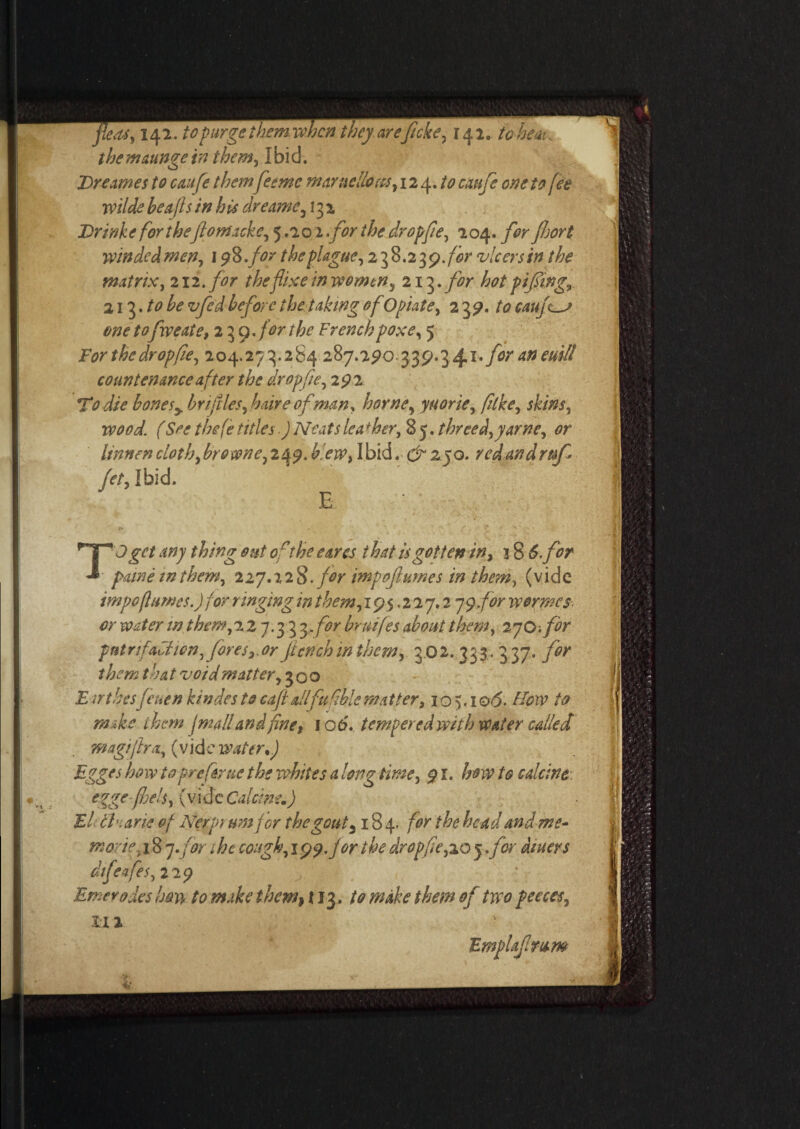 fleas, 142. to purge them when they are sicke, 142. to heale
the maunge in them, Ibid.
Dreames to cause them seeme marvellous, 124. to cause one to see
wilde beasts in his dreame, 132
Drinke for the stomacke, 5.202. for the dropsie, 204. for short
winded men, 198. for the plague, 238.239. for vlcers in the
matrix, 212. for the flixe in women, 213. for hot pissing,
213. to be vsed before the taking of Opiate, 239. to cause
one to sweate, 239. for the French poxe, 5
For the dropsie, 204.273.284 287.290 339.341. for an euill
countenance after the dropsie, 292
To die bones, bristles, haire of man, horne, yuorie, silke, skins,
wood. (See these titles.) Neats leather, 85. threed, yarne, or
linnen cloth, browne, 249. blew, Ibid. & 250. red and rus-
set, Ibid.
E
TO get any thing out of the eares that is gotten in, 186. for
paine in them, 227.228. for impostumes in them, (vide
impostumes.) for ringing in them, 195.227.279. for wormes
or water in them, 227.333. for bruises about them, 270. for
putrifaction, sores, or stench in them, 302.333.337. for
them that void matter, 300
Earthes seuen kindes to cast all fusible matter, 105.106. How to
make them small and fine, 106. tempered with water called
magistra, (vide water.)
Egges how to preserue the whites a long time, 91. how to calcine
egge-shels, (vide Calcine.)
Electuarie of Nerprum for the gout, 184. for the head and me-
morie, 187. for the cough, 199. for the dropsie, 205. for diuers
diseases, 229
Emerodes how to make them, 113. to make them of two peeces,
112
Emplastrum